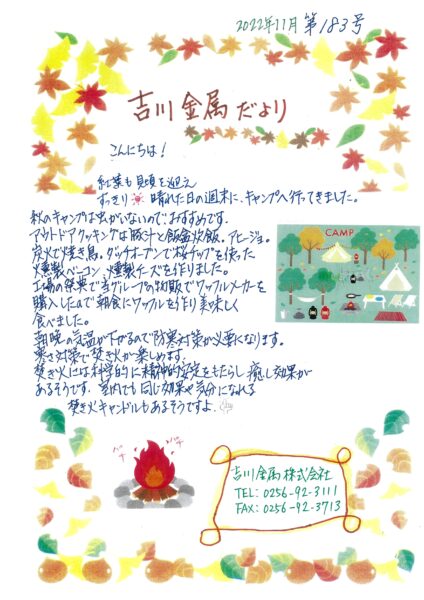 2022年11月 第183号
吉川金属だより
こんにちは!
紅葉も見頃を迎え
すっきり晴れた日の週末に、キャンプへ行ってきました。
秋のキャンプは虫がいないので、おすすめです。
アウトドアクッキングは豚汁と飯盒炊飯。アヒージョ。
炭火で焼き鳥。ダッチオーブンで桜チップを使った
燻製ベーコン、燻製チーズを作りました。
工場の祭典で当グループの物販でワッフルメーカーを
購入したので朝食にワッフルを作り美味しく
食べました。
朝晩の気温が下がるので防寒対策が必要になります。
寒さ対策で焚き火が楽しめます。
焚き火には科学的に精神的安定をもたらし癒し効果が
あるそうです。室内でも同じ効果や気分になれる
焚き火キャンドルもあるそうですよ。
CAMP
パチ パチ
吉川金属株式会社
TEL: 0256-92-3111
FAX: 0256-92-3713